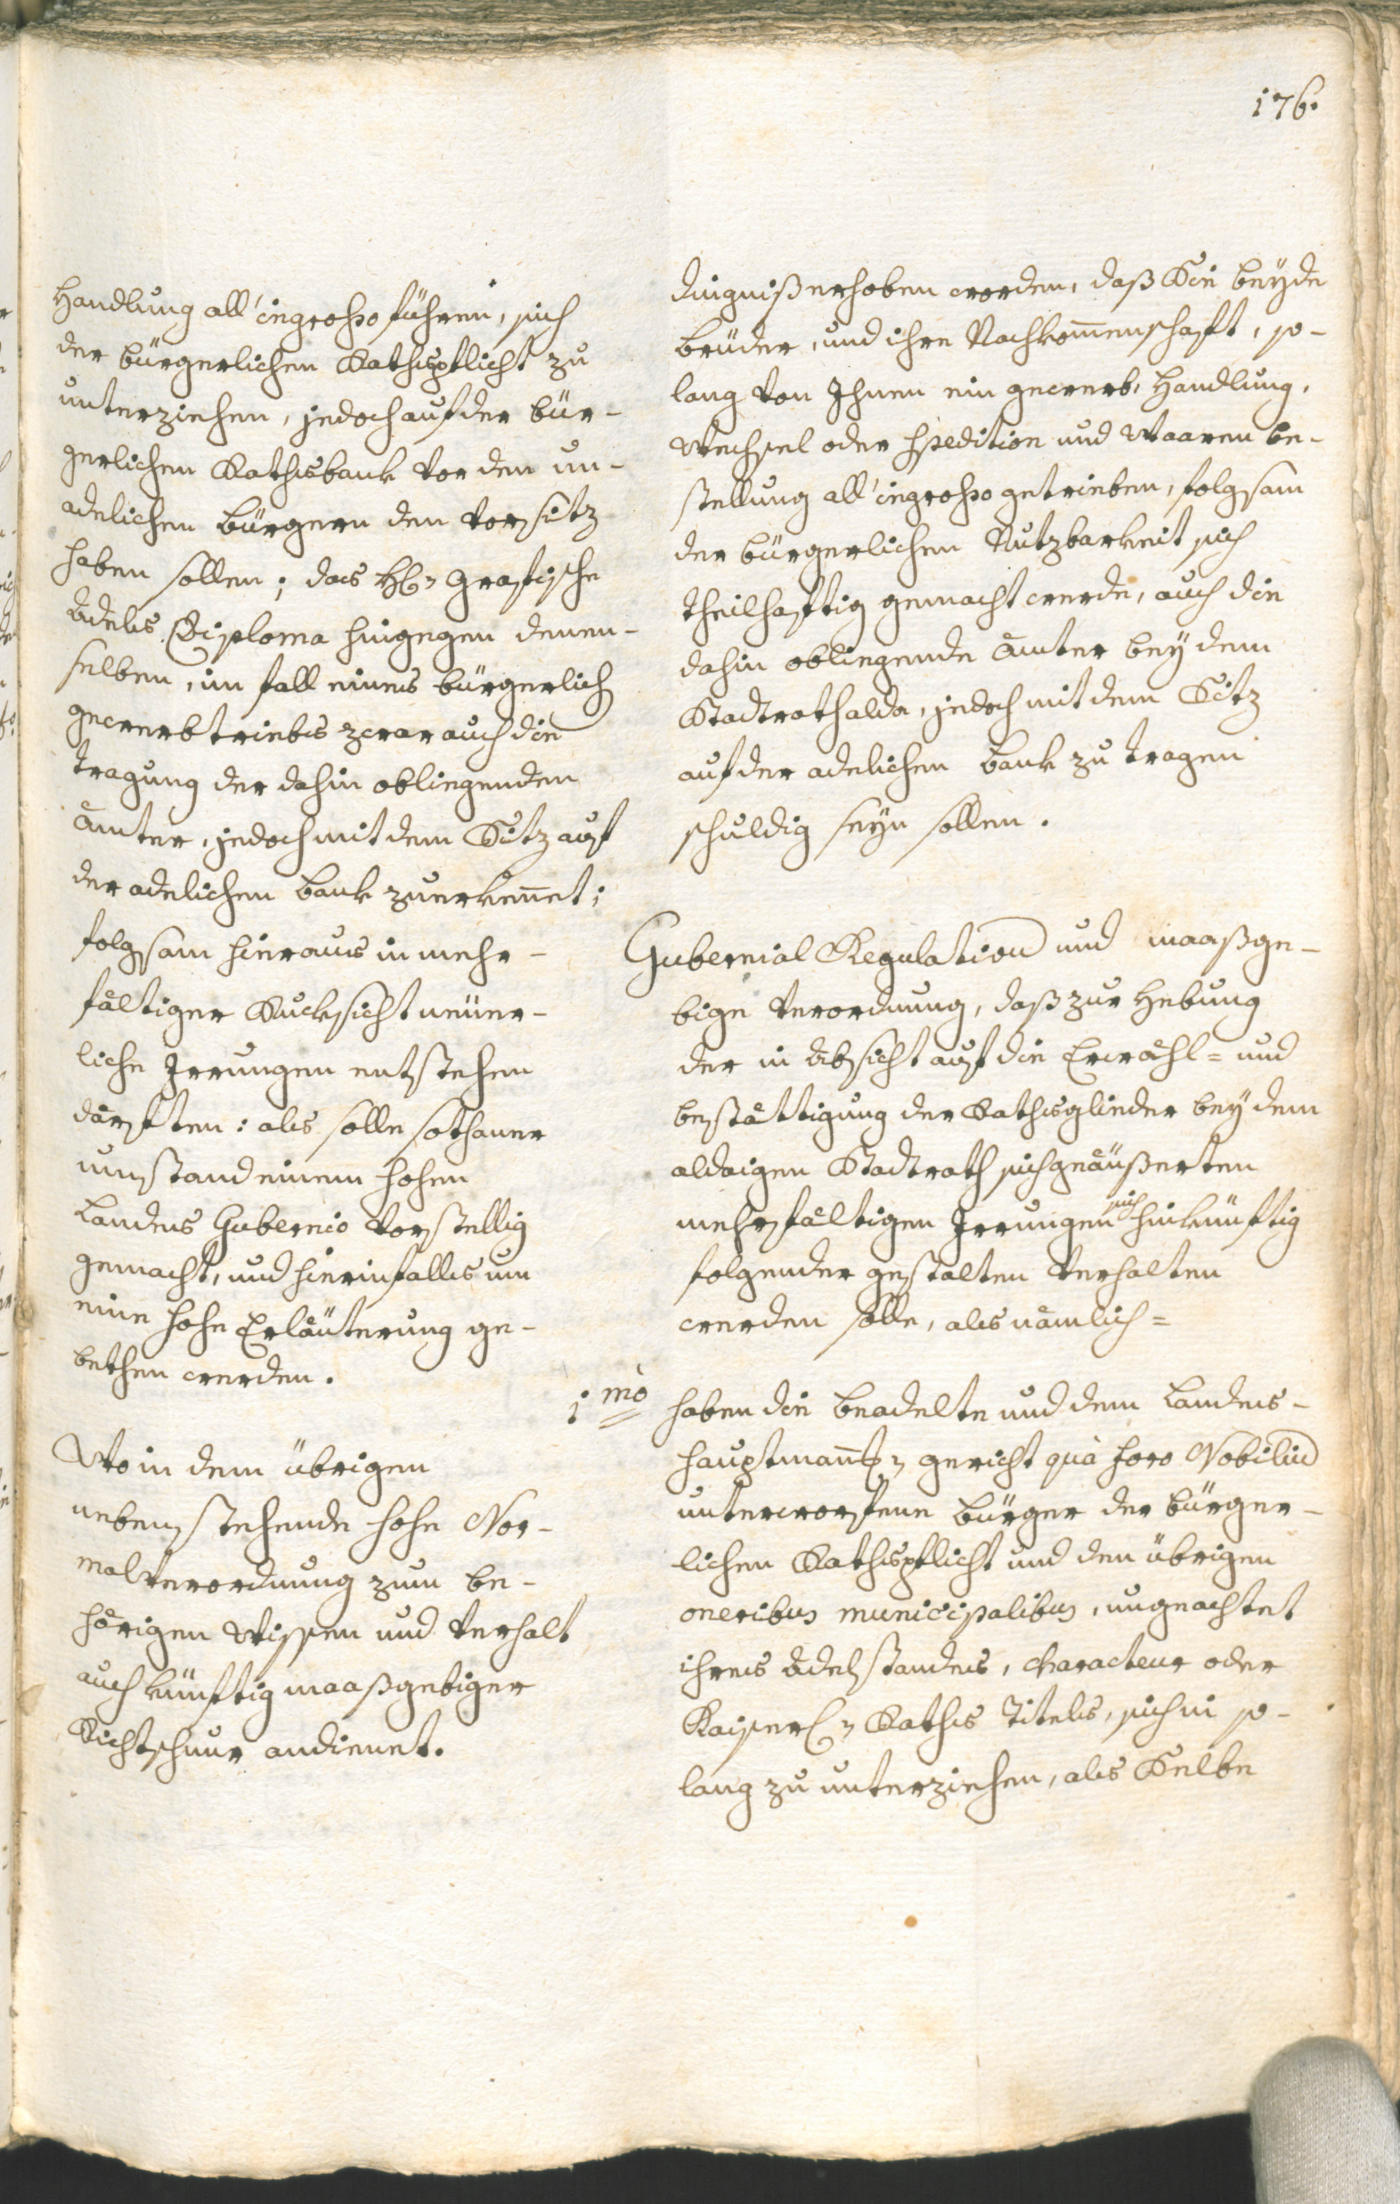 176.
Handlung all'ingroßo führen, sich
der bürgerlichen Rathspflicht zu
unterziehen, jedoch auf der bür-
gerlichen Rathsbank vor den un-
adelichen bürgern den vorsitz
haben sollen; das H: Grafische
Adels Diploma hingegen denen-
selben, im fall eines bürgerlich
gewerbtriebs zwar auch die
tragung der dahin obliegenden
ämter, jedoch mit dem Sitz auf
der adelichen bank zuerkennet;
folgsam hieraus in mehr-
fältiger Rucksicht neüer-
liche Irrungen entstehen
därften: als solle sothaner
umstand einem hohen
Landes Gubernio vorstellig
gemacht, und hierinfalls um
eine hohe Erläuterung ge-
bethen werden.
Wo in dem übrigen
nebenstehende hohe Nor-
malverordnung zum be-
hörigen Wissen und verhalt
auch künftig maaßgebiger
Richtschnur andienet.
dingniß erhoben worden, daß Sie beyde
brüder, und ihre Nachkommenschaft, so-
lang von Ihnen ein gewerb, Handlung,
Wechsel oder Spedition und Waaren be-
stellung all'ingroßo getrieben, folgsam
der bürgerlichen Nutzbarkeit sich
theilhaftig gemacht werde, auch die
dahin obliegende ämter bey dem
Stadtrath alda, jedoch mit dem Sitz
auf der adelichen bank zu tragen
schuldig seyn sollen.
Gubernial Regulation und maaßge-
bige Verordnung, daß zur Hebung
der in Absicht auf die Erwähl- und
bestättigung der Rathsglieder bey dem
aldaigen Stadtrath sich geäußerten
mehrfältigen Irrungen sich hinkünftig
folgender gestalten verhalten
werden solle, als nämlich=
1mo haben die beadelte und dem Landes-
hauptmannsch: gericht quà foro Nobilium
unterworfene bürger der bürger-
lichen Rathspflicht und den übrigen
oneribus municipalibus, ungeachtet
ihres Adelstandes, characteur oder
Kaiserl: Raths Titels, sich in so-
lang zu unterziehen, als Selbe